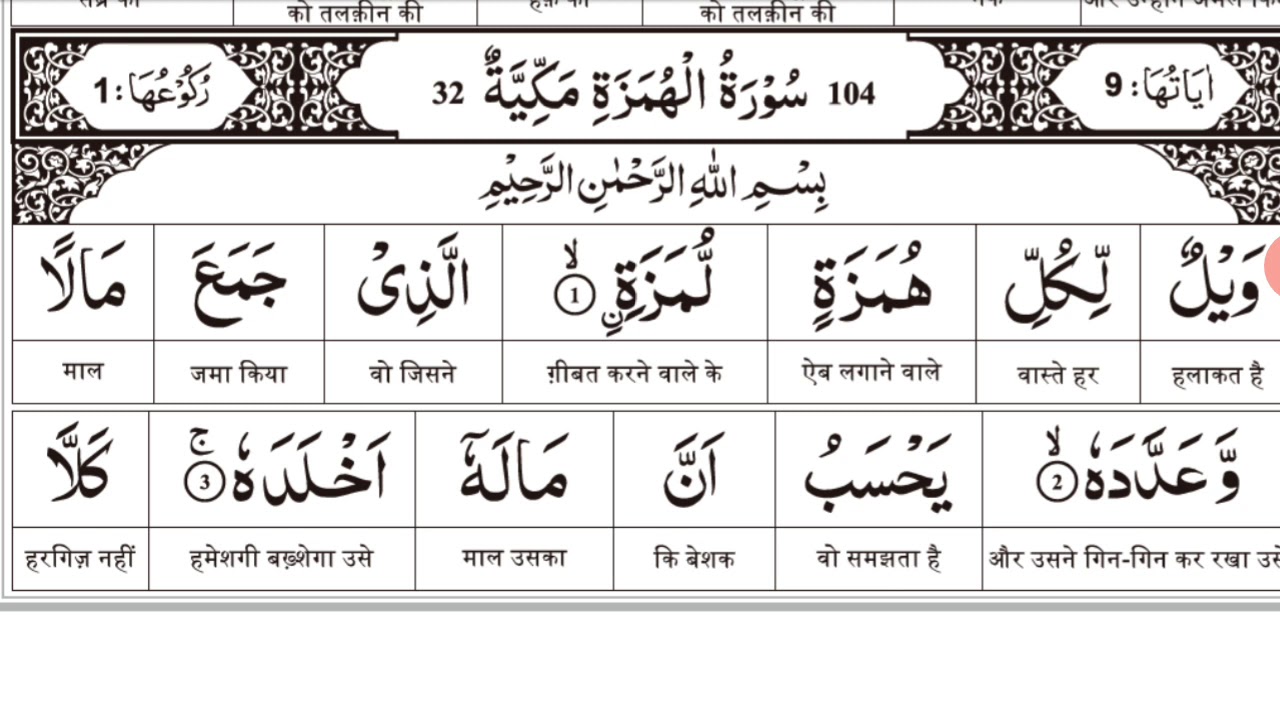 को तलक़ीन की को तलक़ीन की
اٰيَاتُهَا: 9 104 سُوْرَةُ الْهُمَزَةِ مَكِّيَّةٌ 32 رُكُوْعُهَا: 1
بِسْمِ اللّٰهِ الرَّحْمٰنِ الرَّحِيْمِ
وَيْلٌ لِّكُلِّ هُمَزَةٍ لُّمَزَةِ ۙنِ ① الَّذِیْ جَمَعَ مَالًا
माल जमा किया वो जिसने ग़ीबत करने वाले के ऐब लगाने वाले वास्ते हर हलाकत है
وَّعَدَّدَهٗ ۙ② يَحْسَبُ اَنَّ مَالَهٗۤ اَخْلَدَهٗ ۚ③ كَلَّا
हरगिज़ नहीं हमेशगी बख़्शेगा उसे माल उसका कि बेशक वो समझता है और उसने गिन-गिन कर रखा उसे